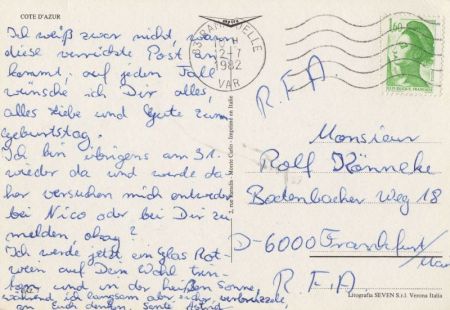 COTE D'AZUR
Ich weiß zwar nicht, wann
diese verrückte Post an-
kommt, auf jeden Fall
wünsche ich Dir alles,
alles Liebe und Gute zum
Geburtstag.
Ich bin übrigens am 31.
wieder da und werde da-
her versuchen mich entweder
bei Nico oder bei Dir zu
melden, okay?
Ich werde jetzt ein Glas Rot-
wein auf Dein Wohl trin-
ken und in der heißen Sonne,
während ich langsam aber sicher verbrutzele,
an Euch denken.
83 RAMATUELLE
1982
VAR
1,60
R.F.A.
Monsieur
Rolf Könneke
Bodenbacher Weg 18
D-6000 Frankfurt/
Main
R.F.A.
Litografia SEVEN S.r.l. Verona Italia